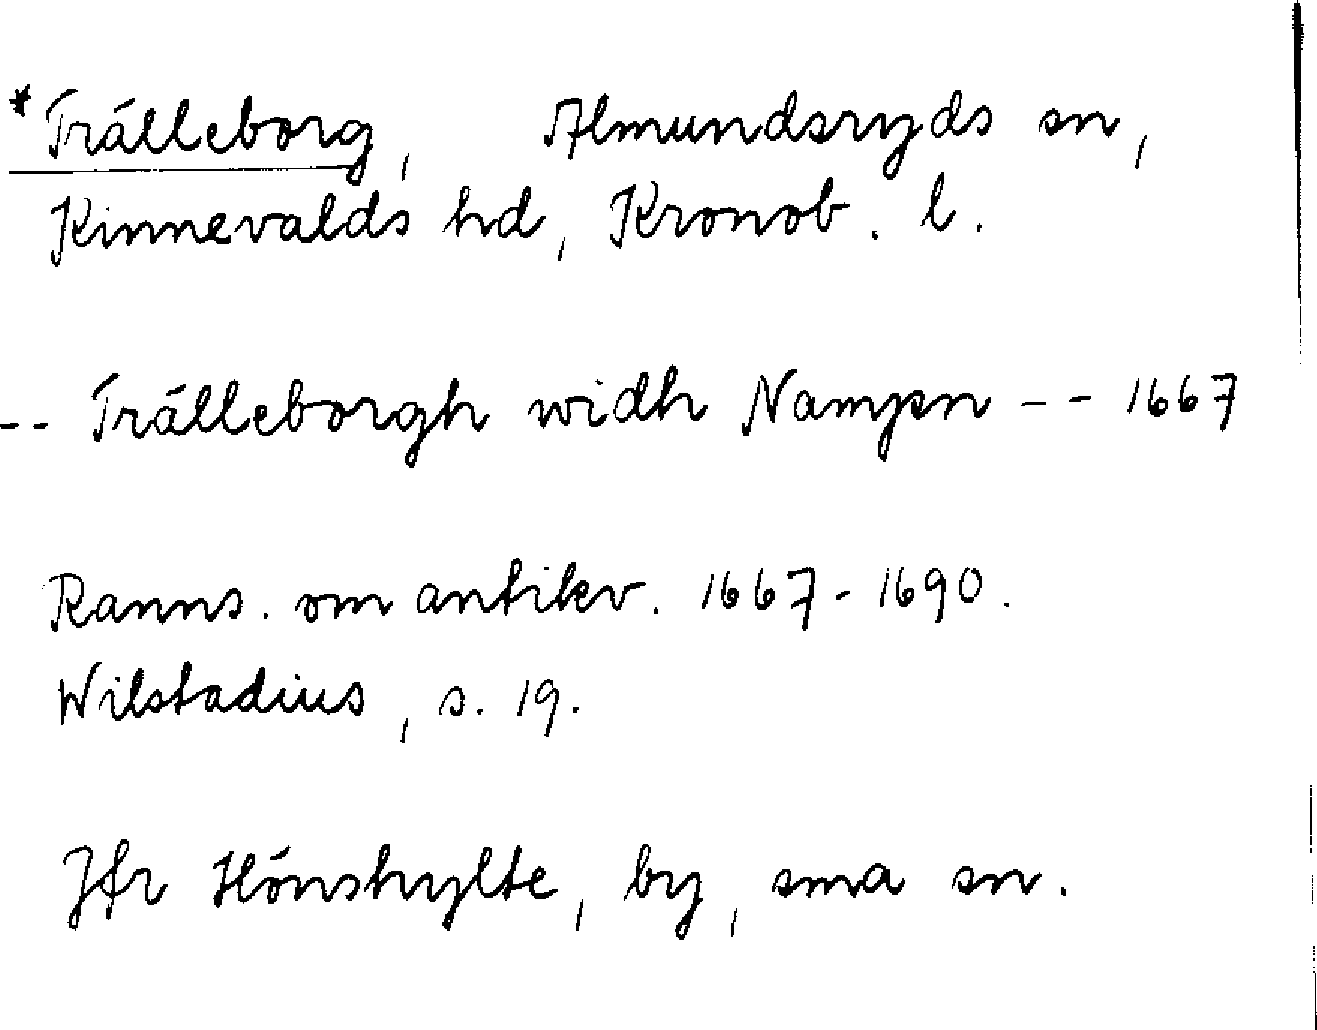 *Trälleborg, Almundsryds sn,
Kinnevalds hd, Kronob. l.
-- Trälleborgh widh Nampn -- 1667
Ranns. om antikv. 1667-1690.
Wilstadius, s. 19.
Jfr Hönshylte, by, sma sn.